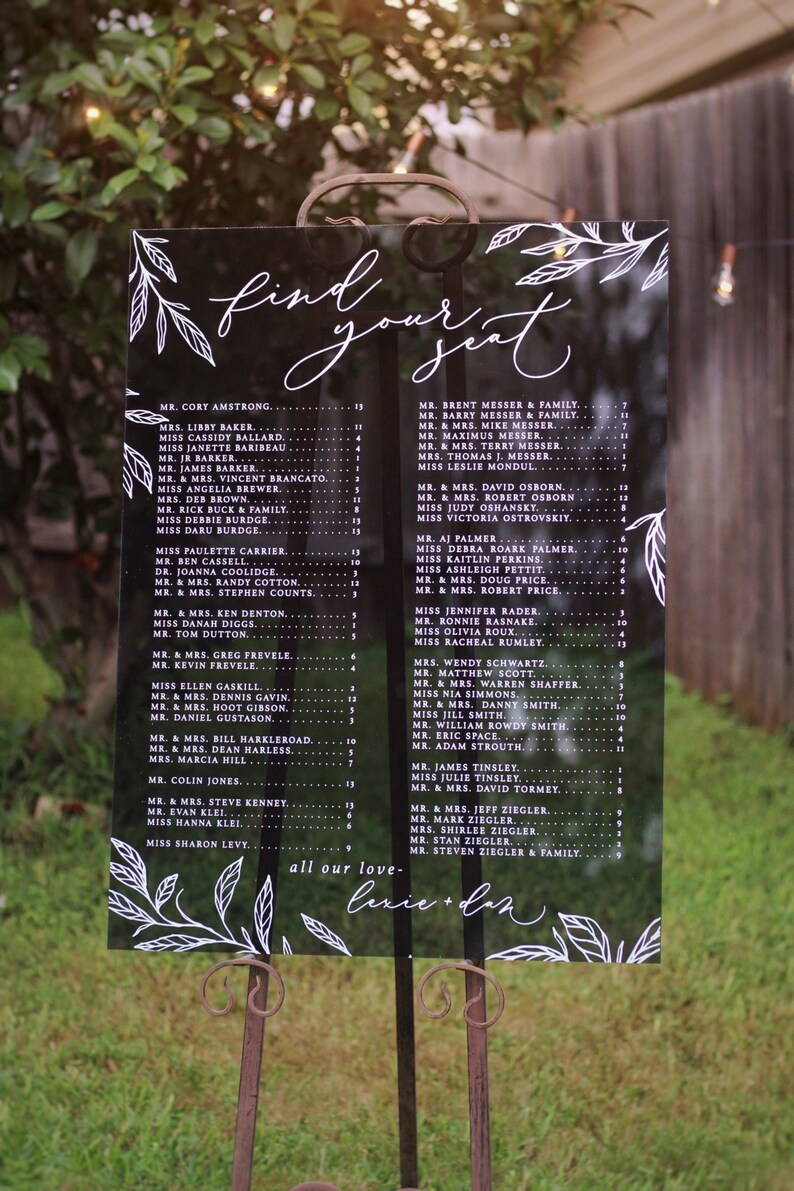 find
your
seat
MR. CORY AMSTRONG. . . . . . . . . . . . 13
MRS. LIBBY BAKER. . . . . . . . . . . . . . . 11
MISS CASSIDY BALLARD. . . . . . . . . . . 4
MISS JANETTE BARIBEAU . . . . . . . . . . 4
MR. JR BARKER. . . . . . . . . . . . . . . . . . 1
MR. JAMES BARKER. . . . . . . . . . . . . . . 1
MR. & MRS. VINCENT BRANCATO. . . . . 2
MISS ANGELIA BREWER. . . . . . . . . . . 5
MRS. DEB BROWN. . . . . . . . . . . . . . . . 11
MR. RICK BUCK & FAMILY. . . . . . . . . . 8
MISS DEBBIE BURDGE. . . . . . . . . . . . . 13
MISS DARU BURDGE. . . . . . . . . . . . . . 13
MISS PAULETTE CARRIER. . . . . . . . . . 13
MR. BEN CASSELL. . . . . . . . . . . . . . . . 10
DR. JOANNA COOLIDGE. . . . . . . . . . . 3
MR. & MRS. RANDY COTTON. . . . . . . . 12
MR. & MRS. STEPHEN COUNTS. . . . . . . 3
MR. & MRS. KEN DENTON. . . . . . . . . . 5
MISS DANAH DIGGS. . . . . . . . . . . . . . . 1
MR. TOM DUTTON. . . . . . . . . . . . . . . . 5
MR. & MRS. GREG FREVELE. . . . . . . . . 6
MR. KEVIN FREVELE. . . . . . . . . . . . . . 4
MISS ELLEN GASKILL. . . . . . . . . . . . . 2
MR. & MRS. DENNIS GAVIN. . . . . . . . . 12
MR. & MRS. HOOT GIBSON. . . . . . . . . . 5
MR. DANIEL GUSTASON. . . . . . . . . . . . 3
MR. & MRS. BILL HARKLEROAD. . . . . 10
MR. & MRS. DEAN HARLESS. . . . . . . . . 5
MRS. MARCIA HILL . . . . . . . . . . . . . . . 7
MR. COLIN JONES. . . . . . . . . . . . . . . . 13
MR. & MRS. STEVE KENNEY. . . . . . . . . 13
MR. EVAN KLEI. . . . . . . . . . . . . . . . . . 6
MISS HANNA KLEI. . . . . . . . . . . . . . . . 6
MISS SHARON LEVY. . . . . . . . . . . . . . . 9
MR. BRENT MESSER & FAMILY. . . . . . . 7
MR. BARRY MESSER & FAMILY. . . . . . . 11
MR. & MRS. MIKE MESSER. . . . . . . . . . 7
MR. MAXIMUS MESSER. . . . . . . . . . . . 11
MR. & MRS. TERRY MESSER. . . . . . . . . 1
MRS. THOMAS J. MESSER. . . . . . . . . . . 1
MISS LESLIE MONDUL. . . . . . . . . . . . . 7
MR. & MRS. DAVID OSBORN. . . . . . . . . 12
MR. & MRS. ROBERT OSBORN . . . . . . . 12
MISS JUDY OSHANSKY. . . . . . . . . . . . . 8
MISS VICTORIA OSTROVSKIY. . . . . . . . 4
MR. AJ PALMER . . . . . . . . . . . . . . . . . 6
MISS DEBRA ROARK PALMER. . . . . . . 10
MISS KAITLIN PERKINS. . . . . . . . . . . . 4
MISS ASHLEIGH PETTIT. . . . . . . . . . . . 6
MR. & MRS. DOUG PRICE. . . . . . . . . . . 6
MR. & MRS. ROBERT PRICE. . . . . . . . . 2
MISS JENNIFER RADER. . . . . . . . . . . . 3
MR. RONNIE RASNAKE. . . . . . . . . . . . 10
MISS OLIVIA ROUX. . . . . . . . . . . . . . . 4
MISS RACHEAL RUMLEY. . . . . . . . . . . 13
MRS. WENDY SCHWARTZ. . . . . . . . . . . 8
MR. MATTHEW SCOTT. . . . . . . . . . . . . 3
MR. & MRS. WARREN SHAFFER. . . . . . 3
MISS NIA SIMMONS. . . . . . . . . . . . . . . 7
MR. & MRS. DANNY SMITH. . . . . . . . . 10
MISS JILL SMITH. . . . . . . . . . . . . . . . . 10
MR. WILLIAM ROWDY SMITH. . . . . . . . 4
MR. ERIC SPACE. . . . . . . . . . . . . . . . . 4
MR. ADAM STROUTH. . . . . . . . . . . . . . 11
MR. JAMES TINSLEY. . . . . . . . . . . . . . 1
MISS JULIE TINSLEY. . . . . . . . . . . . . . 1
MR. & MRS. DAVID TORMEY. . . . . . . . . 8
MR. & MRS. JEFF ZIEGLER. . . . . . . . . . 9
MR. MARK ZIEGLER. . . . . . . . . . . . . . . 9
MRS. SHIRLEE ZIEGLER. . . . . . . . . . . . 2
MR. STAN ZIEGLER. . . . . . . . . . . . . . . 2
MR. STEVEN ZIEGLER & FAMILY. . . . . 9
all our love-
lexie + dan